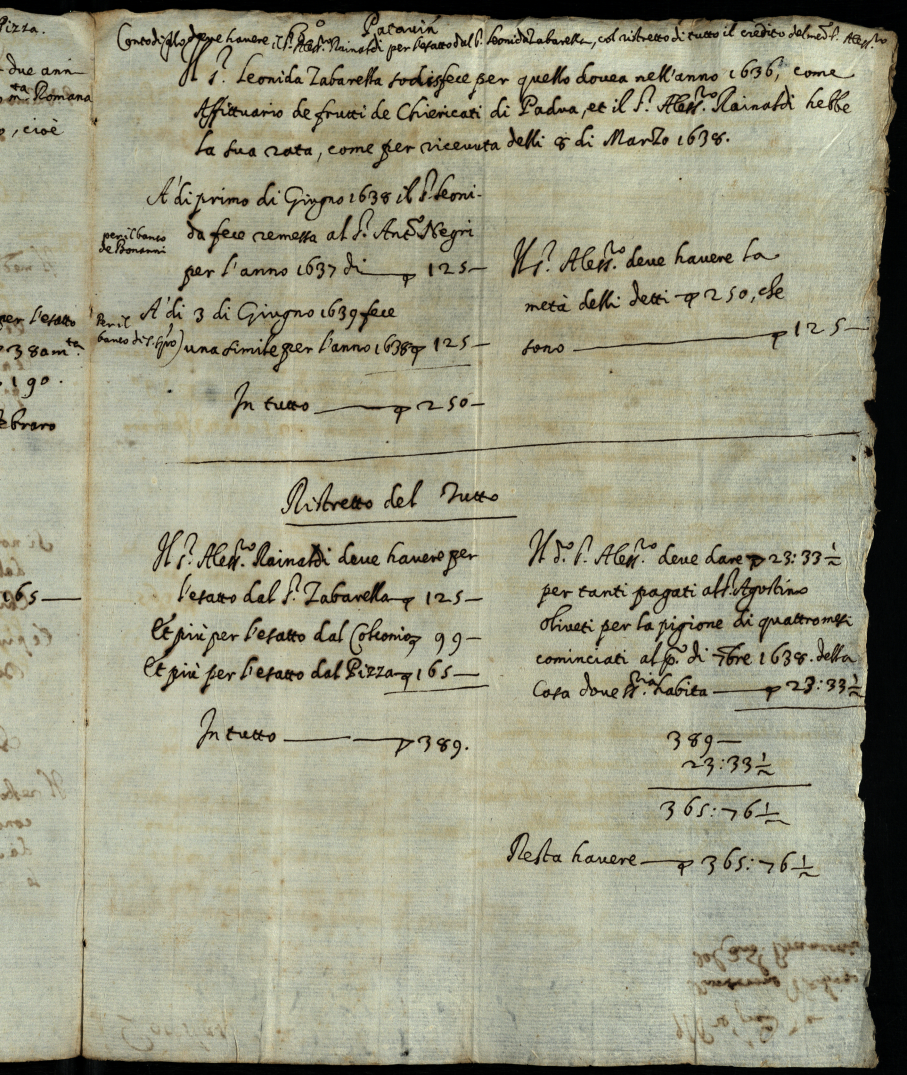 Pizza.
due ann
Romana
, cioè
per l'esatto
38 am.ta
190.
ebraro
165
Patavin
Conto di q.lo deve havere il S.r Aless.ro Rainaldi per l'esatto dal S.r Leonida Zabarella, col ristretto di tutto il credito del med.o S.r Aless.ro
Il S.r Leonida Zabarella sodisfece per quello dovea nell'anno 1636, come
Affittuario de frutti de Chiericati di Padva, et il S.r Aless.ro Rainaldi hebbe
la sua rata, come per ricevuta delli 8 di Marzo 1638.
A' di primo di Giugno 1638 il S.r Leoni-
per il banco
de Bonanni
da fece remessa al S.r Ant.o Negri
per l'anno 1637 di 125—
A' di 3 di Giugno 1639 fece
Per il
banco di S. Sp.ro)
una simile per l'anno 1638 125—
In tutto 250—
Il S.r Aless.ro deve havere la
metà delli detti 250, che
sono 125—
Ristretto del Tutto
Il S.r Aless.ro Rainaldi deve havere per
l'esatto dal S.r Zabarella 125—
Et più per l'esatto dal Coleonio 99—
Et più per l'esatto dal Pizza 165—
In tutto 389.
Il d.o S.r Aless.ro deve dare 23:33½
per tanti pagati al S.r Agostino
Oliveti per la pigione di quattro mesi
cominciati al p.o di 7bre 1638. della
Casa dove habita 23:33½
389—
23:33½
365:76½
Resta havere 365:76½